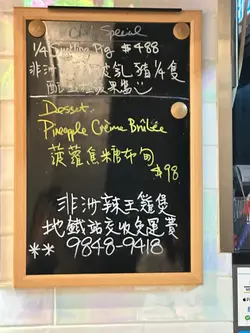 Chef Special
1/4 Suckling Pig $488
非洲 乳豬1/4隻
Dessert
Pineapple Crème Brûlée
菠蘿焦糖布甸
$98
非洲辣王雞煲
地鐵站交收免運費
** 9848-9418